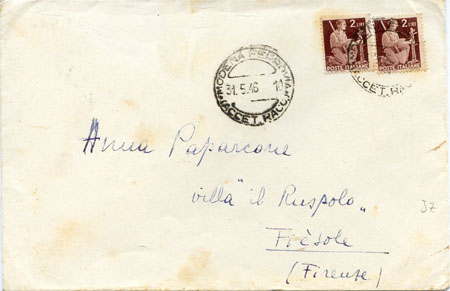 2 LIRE 2 LIRE
POSTE ITALIANE POSTE ITALIANE
MODENA FERROVIA
31.5.46
(ACCET. RACC.)
Anna Paparcone
villa "il Ruspolo"
37
Fièsole
(Firenze)